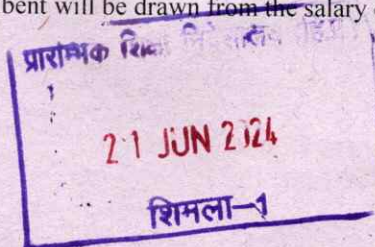 bent will be drawn from the salary
प्रारम्भिक शिक्षा
21 JUN 2024
शिमला-1